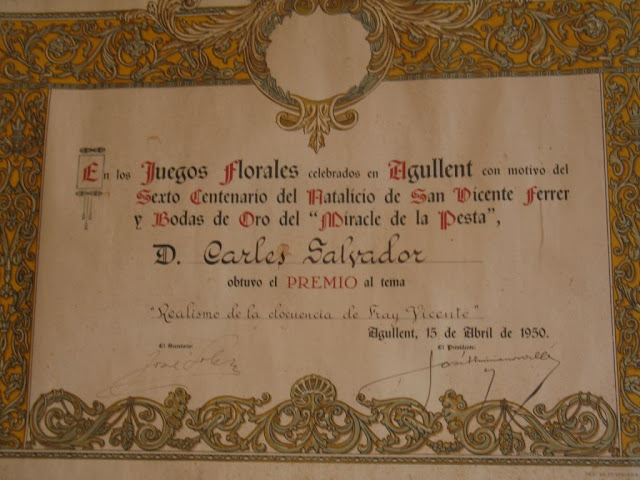 En los Juegos Florales celebrados en Agullent con motivo del
Sexto Centenario del Natalicio de San Vicente Ferrer
y Bodas de Oro del "Miracle de la Pesta",
D. Carles Salvador
obtuvo el PREMIO al tema
"Realismo de la elocuencia de Fray Vicente"
Agullent, 15 de Abril de 1950.
El Secretario: El Presidente: